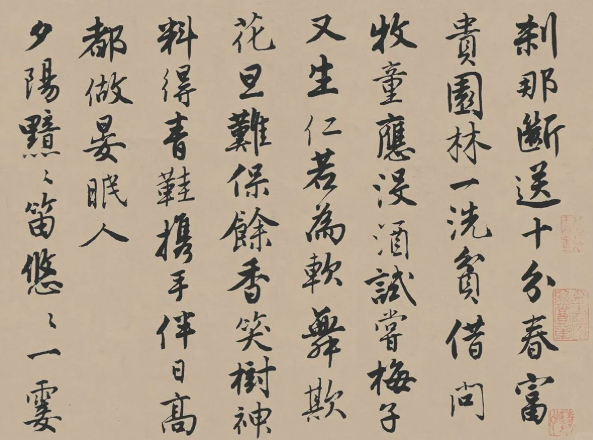 刹那斷送十分春富
貴園林一洗貧借問
牧童應沒酒試嘗梅子
又生仁若為軟舞欺
花旦難保餘香笑樹神
料得青鞋攜手伴日高
都做晏眠人
夕陽黯〻笛悠〻一霎